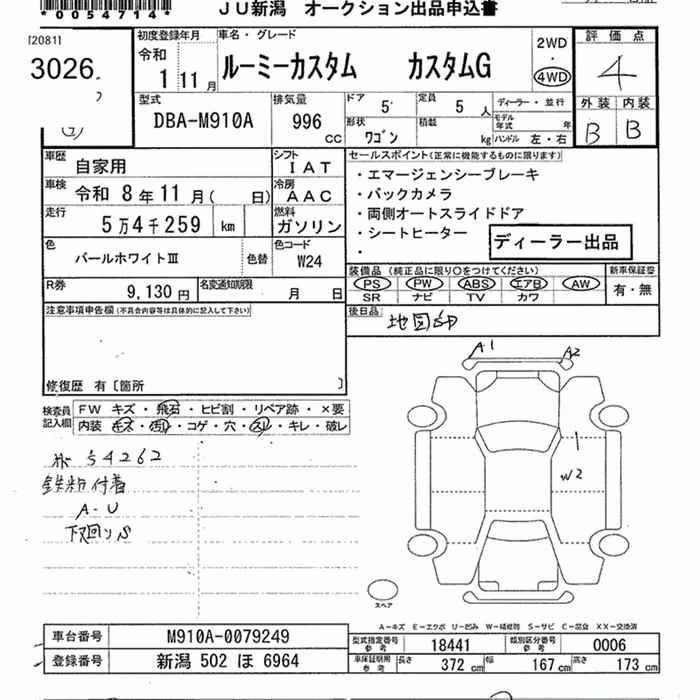 *0054714*
JU新潟 オークション出品申込書
120811
3026
初度登録年月
令和
1 11月
車名・グレード
ルーミーカスタム カスタムG
2WD
・
4WD
評価点
4
外装 内装
B B
型式
DBA-M910A
排気量
996
CC
ドア
5
定員
5人
形状
ワゴン
積載
kg
ディーラー・並行
モデル年式 年
ハンドル 左・右
車歴
自家用
シフト
IAT
車検 令和8年11月( 日)
冷房
AAC
走行
5万4千259 km
燃料
ガソリン
色
パールホワイトⅢ
色替
色コード
W24
R券
9,130円
名変通知期限
月 日
セールスポイント(正常に機能するものに限ります)
・エマージェンシーブレーキ
・バックカメラ
・両側オートスライドドア
・シートヒーター
・
ディーラー出品
装備品(純正品に限り○をつけてください)
PS PW ABS エアB AW
SR ナビ TV カワ
新車保証書
有・無
後日品
地図印
注意事項申告欄(不具合内容等は具体的に記入して下さい)
修復歴 有〔箇所 〕
検査員記入欄
FW キズ・飛石・ヒビ割・リペア跡・×要
内装 キズ・汚れ・コゲ・穴・スレ・キレ・破レ
54262
鉄粉付着
A・U
下回りS
A1
A2
W2
スペア
A-キズ E-エクボ U-凹み W-補修跡 S-サビ C-腐食 XX-交換済
車台番号 M910A-0079249
登録番号 新潟 502 ほ 6964
型式指定番号 参考 18441
類別区分番号 参考 0006
車体証明用 参考 長さ 372cm 幅 167cm 高さ 173cm